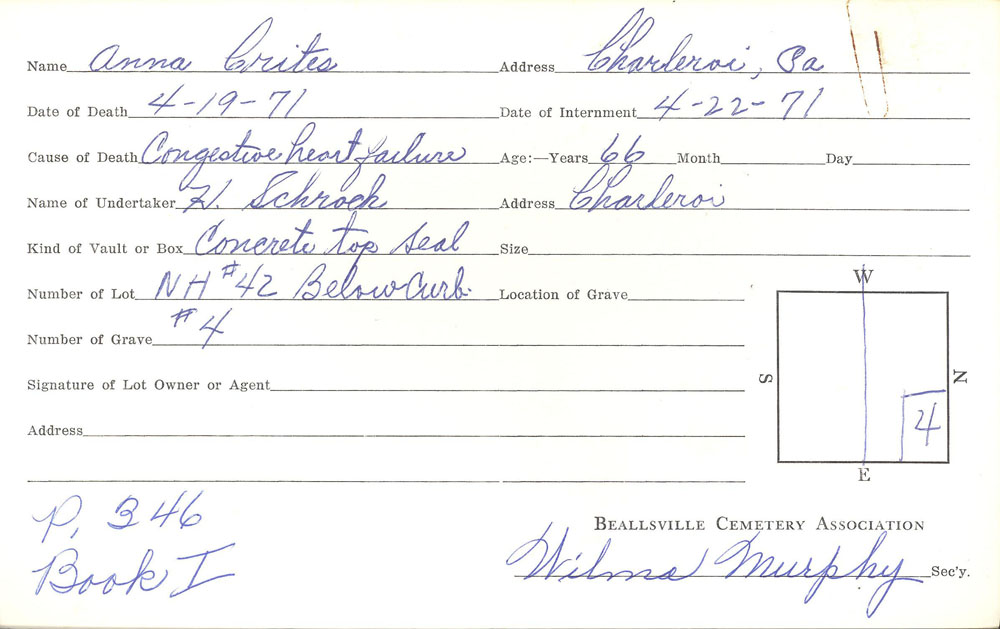 Name Anna Crites Address Charleroi, Pa
Date of Death 4-19-71 Date of Internment 4-22-71
Cause of Death Congestive heart failure Age:—Years 66 Month Day
Name of Undertaker H. Schrock Address Charleroi
Kind of Vault or Box Concrete top seal Size
Number of Lot NH #42 Below Curb. Location of Grave
Number of Grave #4
Signature of Lot Owner or Agent
Address
W
S N
4
E
P. 346
Book I
BEALLSVILLE CEMETERY ASSOCIATION
Wilma Murphy Sec'y.